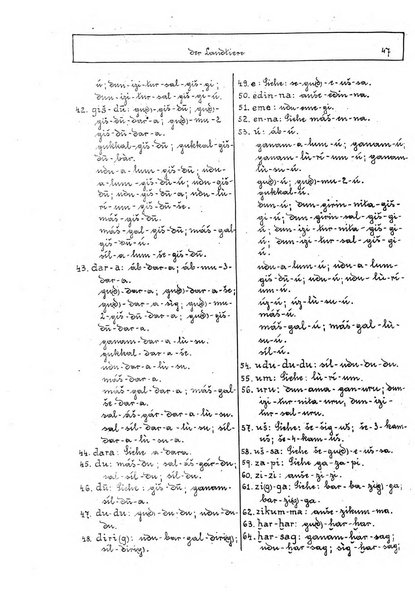 der Landtiere 47
ú; dun-izi-lur-sal-giš-gi;
dun-izi-lur-sal-giš-gi-ú.
42. giš-dŭ: gu(d)-giš-dŭ; gu(d)-
giš-dŭ-dar-a; gu(d)-mu-2
giš-dŭ-dar-a.
gukkal-giš-dŭ; gukkal-giš-
dŭ-bar.
udu-a-lum-giš-dŭ; udu-
a-lum-giš-dŭ-ú; udu-giš-
dŭ; udu-giš-dŭ-a; udu-lù-
ri-um-giš-dŭ-še.
máš-giš-dŭ.
máš-gal-giš-dŭ; máš-gal-
giš-dŭ-ú.
sil-a-lum-še-giš-dŭ.
43. dar-a: áb-dar-a; áb-mu-3-
dar-a.
gu(d)-dar-a; gu(d)-dar-a-še;
gu(d)-dar-a-sig; gu(d)-mu-
2-giš-dar-a; gu(d)-mu-2-giš-
dŭ-dar-a.
ganam-dar-a-lù-su.
gukkal-dar-a-še.
udu-dar-a.
máš-dar-a.
máš-gal-dar-a; máš-gal-
dar-a-še.
sal-áš-gár-dar-a-lù-su.
sil-dar-a-lù-su; sil-
dar-a-lù-su-a.
44. dara: Siehe a-dara.
45. du: máš-du; sal-áš-gár-du;
sal-sil-du; sil-du.
46. dŭ: Siehe: giš-dŭ, ganam-
sil-dŭ-a.
47. du-du: gu(d)-du-du; udu-du-
du.
48. diri(g): udu-bar-gal-diri(g);
sil-diri(g).
49. e: Siehe: še-gu(d)-e-uš-sa.
50. edin-na: anše-edin-na.
51. eme: udu-eme-gi.
52. en-na: Siehe máš-en-na.
53. ú: áb-ú.
ganam-a-lum-ú; ganam-ú.
ganam-giš-gi-ú; ganam-
lù-ri-um-ú; ganam-
lù-su-ú.
gu(d)-ú; gu(d)-mu-2-ú.
gukkal-ú.
dun-ú; dun-girin-nita-giš-
gi-ú; dun-girin-sal-giš-gi-
ú; dun-izi-lur-nita-giš-gi-
ú; dun-izi-lur-sal-giš-gi-
ú.
udu-a-lum-ú; udu-a-lum-
giš-dŭ-ú; udu-ú; udu-lù-ri-
um-ú.
ùz-ú; ùz-lù-su-ú.
máš-ú.
máš-gal-ú; máš-gal-lù-
su-ú.
sil-ú.
54. udu-du-du: sil-udu-du-du.
55. um: Siehe: lù-ri-um.
56. uru: dun-ama-gan-uru; dun-
izi-lur-nita-uru, dun-izi-
lur-sal-uru.
57. uš: Siehe: še-šig-uš; še-3-kam-
uš; še-4-kam-uš.
58. uš-sa: Siehe še-gu(d)-e-uš-sa.
59. za-pi: Siehe ga-za-pi.
60. zi-zi: anše-zi-zi.
61. zi(g)-ga: Siehe: bar-ba-zi(g)-ga;
bar-zi(g)-ga.
62. zikum-ma: anše-zikum-ma.
63. ḫar-ḫar: gu(d)-ḫar-ḫar.
64. ḫar-sag: ganam-ḫar-sag;
udu-ḫar-sag; sig-ḫar-sag;